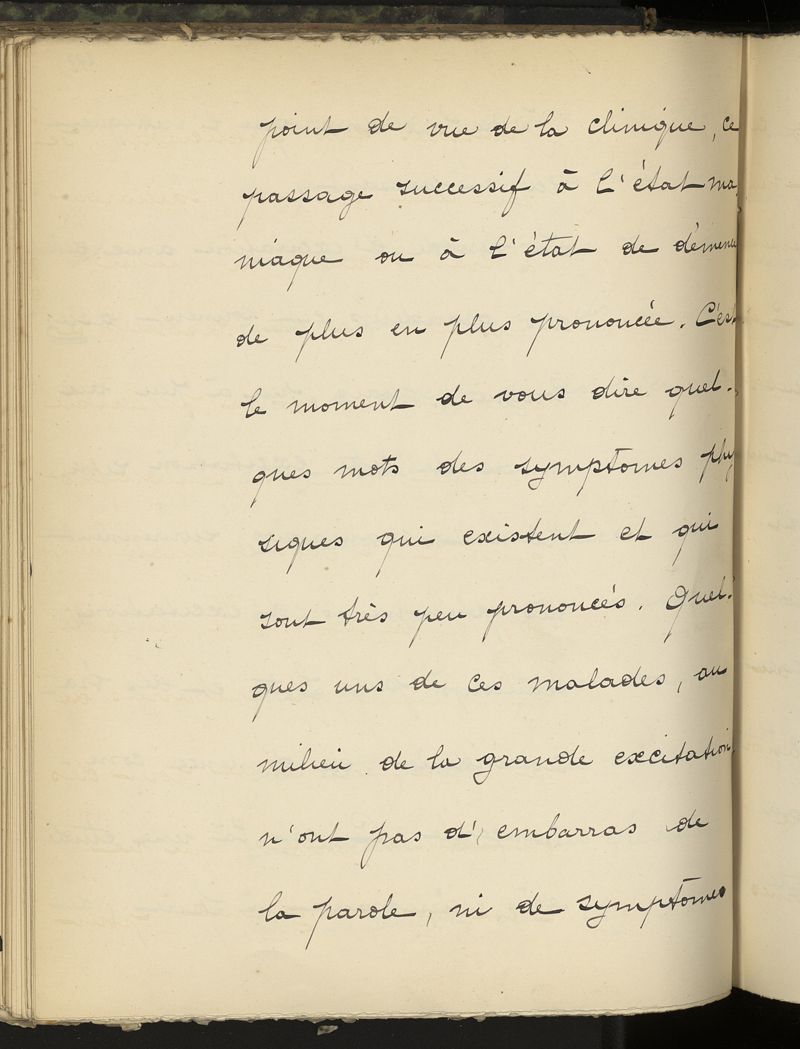 point de vue de la clinique, ce
passage successif à l'état ma-
niaque ou à l'état de démence
de plus en plus prononcée. C'est
le moment de vous dire quel-
ques mots des symptomes phy
siques qui existent et qui
sont très peu prononcés. Quel-
ques uns de ces malades, au
milieu de la grande excitation,
n'ont pas d'embarras de
la parole, ni de symptômes